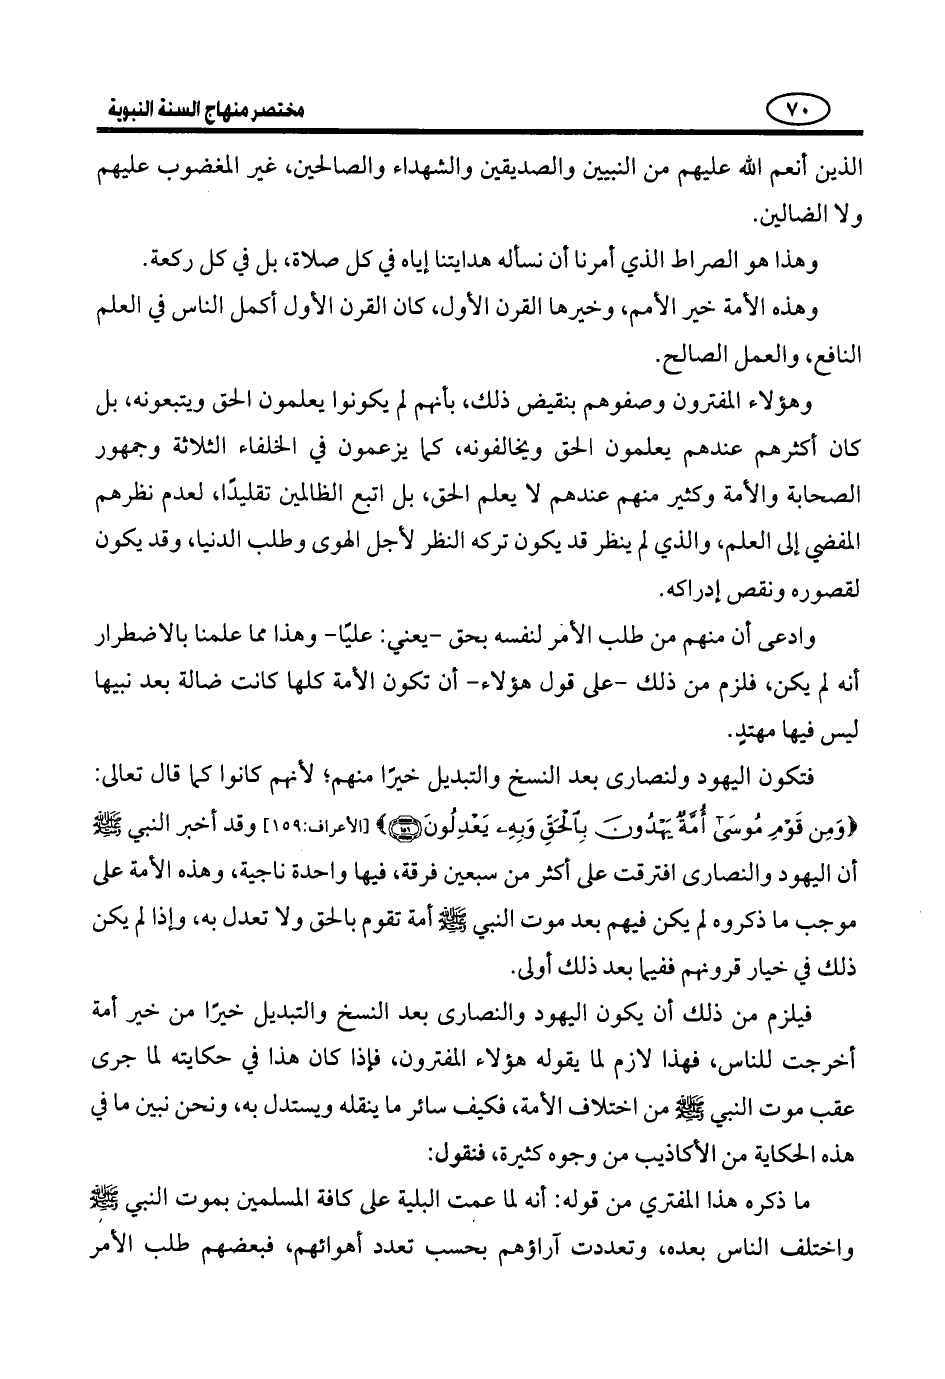 ٧٠ مختصر منهاج السنة النبوية
الذين أنعم الله عليهم من النبيين والصديقين والشهداء والصالحين، غير المغضوب عليهم
ولا الضالين.
وهذا هو الصراط الذي أمرنا أن نسأله هدايتنا إياه في كل صلاة، بل في كل ركعة.
وهذه الأمة خير الأمم، وخيرها القرن الأول، كان القرن الأول أكمل الناس في العلم
النافع، والعمل الصالح.
وهؤلاء المفترون وصفوهم بنقيض ذلك، بأنهم لم يكونوا يعلمون الحق ويتبعونه، بل
كان أكثرهم عندهم يعلمون الحق ويخالفونه، كما يزعمون في الخلفاء الثلاثة وجمهور
الصحابة والأمة وكثير منهم عندهم لا يعلم الحق، بل اتبع الظالمين تقليدًا، لعدم نظرهم
المفضي إلى العلم، والذي لم ينظر قد يكون تركه النظر لأجل الهوى وطلب الدنيا، وقد يكون
لقصوره ونقص إدراكه.
وادعى أن منهم من طلب الأمر لنفسه بحق -يعني: عليًا- وهذا مما علمنا بالاضطرار
أنه لم يكن، فلزم من ذلك -على قول هؤلاء- أن تكون الأمة كلها كانت ضالة بعد نبيها
ليس فيها مهتدٍ.
فتكون اليهود ولنصارى بعد النسخ والتبديل خيرًا منهم؛ لأنهم كانوا كما قال تعالى:
﴿وَمِن قَوْمِ مُوسَىٰٓ أُمَّةٌ يَهْدُونَ بِٱلْحَقِّ وَبِهِۦ يَعْدِلُونَ ١٥٩﴾ [الأعراف:١٥٩] وقد أخبر النبي ﷺ
أن اليهود والنصارى افترقت على أكثر من سبعين فرقة، فيها واحدة ناجية، وهذه الأمة على
موجب ما ذكروه لم يكن فيهم بعد موت النبي ﷺ أمة تقوم بالحق ولا تعدل به، وإذا لم يكن
ذلك في خيار قرونهم ففيما بعد ذلك أولى.
فيلزم من ذلك أن يكون اليهود والنصارى بعد النسخ والتبديل خيرًا من خير أمة
أخرجت للناس، فهذا لازم لما يقوله هؤلاء المفترون، فإذا كان هذا في حكايته لما جرى
عقب موت النبي ﷺ من اختلاف الأمة، فكيف سائر ما ينقله ويستدل به، ونحن نبين ما في
هذه الحكاية من الأكاذيب من وجوه كثيرة، فنقول:
ما ذكره هذا المفتري من قوله: أنه لما عمت البلية على كافة المسلمين بموت النبي ﷺ
واختلف الناس بعده، وتعددت آراؤهم بحسب تعدد أهوائهم، فبعضهم طلب الأمر